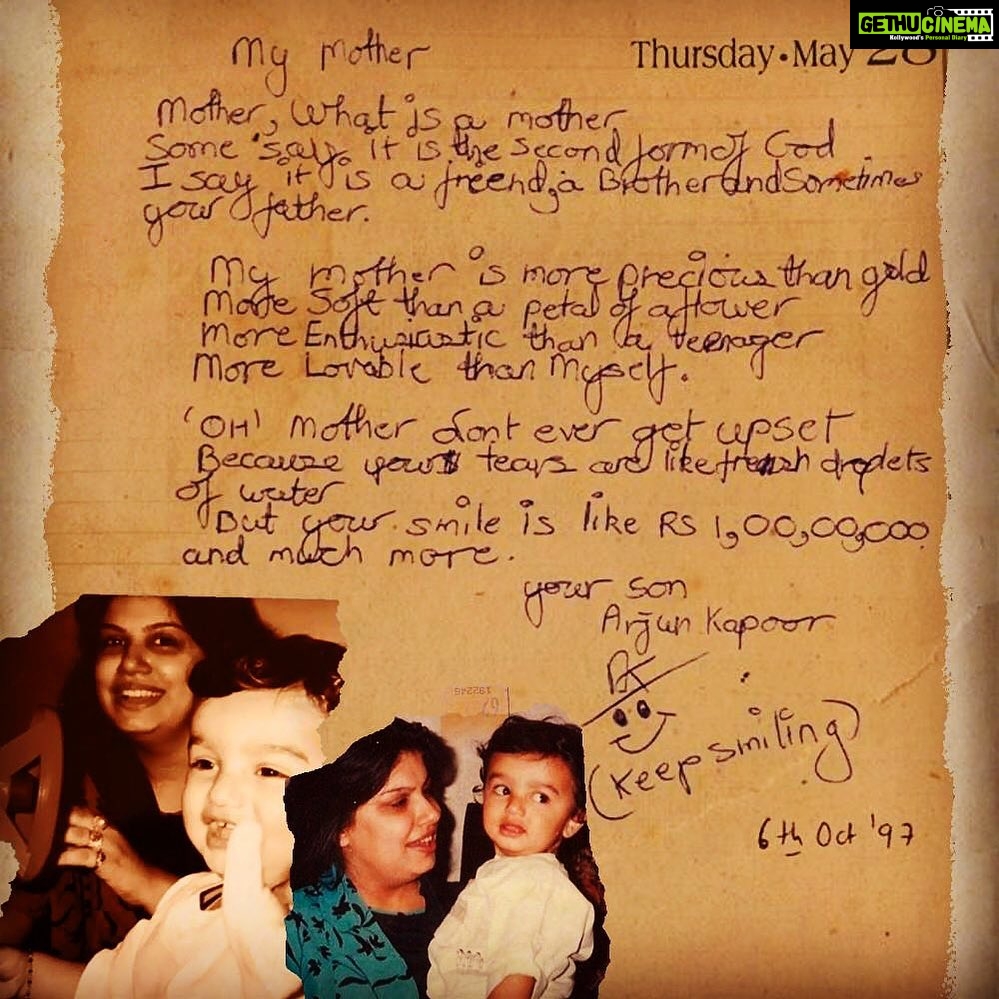 GETHU CINEMA
Kollywood's Personal Diary
My Mother
Thursday • May 28
Mother, What is a mother
Some say. it is the second form of God
I say it is a freend, a Brother and Sometimes
your father.
My mother is more precious than gold
More Soft than a petal of a flower
More Enthusiastic than a teenager
More Lovable than Myself.
'OH' Mother dont ever get upset
Because your tears are like fresh droplets
of water
But your smile is like RS 1,00,00,000
and much more.
your son
Arjun Kapoor
AK
192246
(Keep smiling)
6th Oct '97